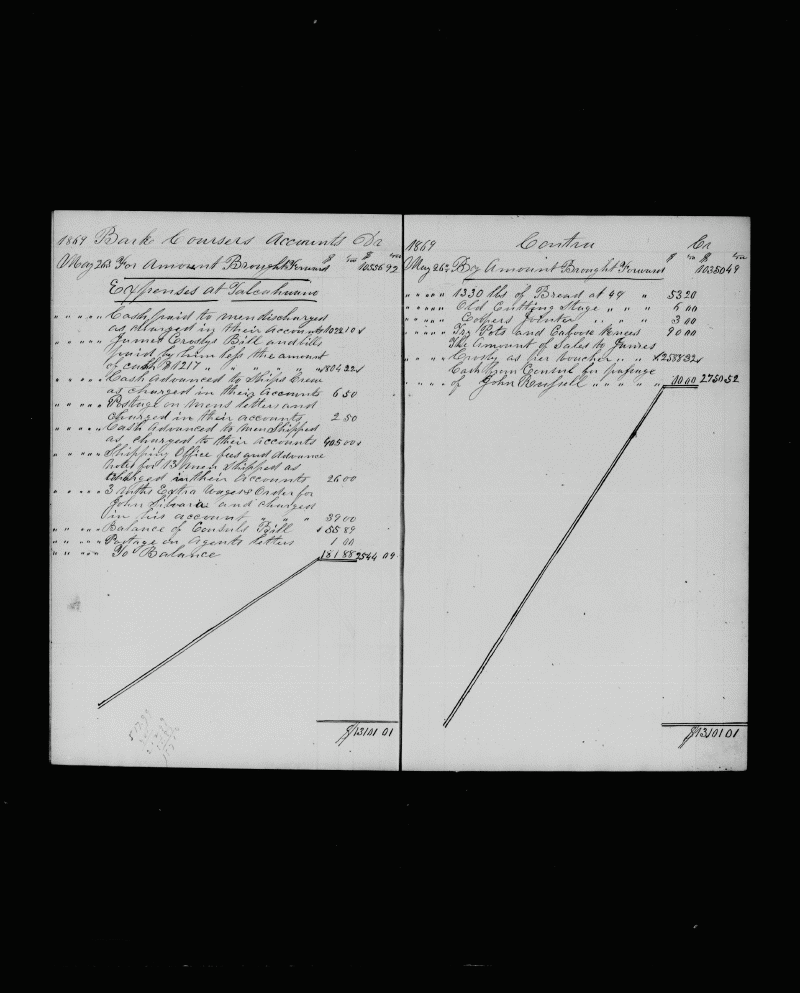 1869 Bark Coursers Accounts Dr
$ cts $ cts
May 26 For Amount Brought Forward 10556 92
Expenses at Talcahuano
" " " " " Cash paid to men discharged
as charged in their accounts 1022 10
" " " " " James Crosbys Bill and bills
paid by him less the amount
of cash $1217 " " " " " " 804 32
" " " " " Cash Advanced to Ships Crew
as charged in their accounts 6 50
" " " " " Postage on mens letters and
charged in their accounts 2 50
" " " " " Cash Advanced to men Shipped
as charged to their accounts 405 00
" " " " " Shipping Office fees and Advance
notes for 13 men shipped as
charged in their accounts 26 00
" " " " " 3 mths Extra wages & Order for
John and charged
in his account " " " 39 00
" " " " " Balance of Consuls Bill 55 89
" " " " " Postage on Agents letters 1 00
" " " " " To Balance 181 88 2544 09
$13101 01
1869 Contra Cr
$ cts $ cts
May 26 By Amount Brought Forward 10350 49
" " " " " 1330 lbs of Bread at 4 " 53 20
" " " " " Old Cutting Stage " " " 6 00
" " " " " Coopers Jointer " " " 3 00
" " " " " Try Pots and Caboose Knees 90 00
The Amount of Sales to James
" " " " " Crosby as per Voucher " " 2588 32
Cash from Consul for passage
" " " " " of John " " " " " 10 00 2750 52
$13101 01